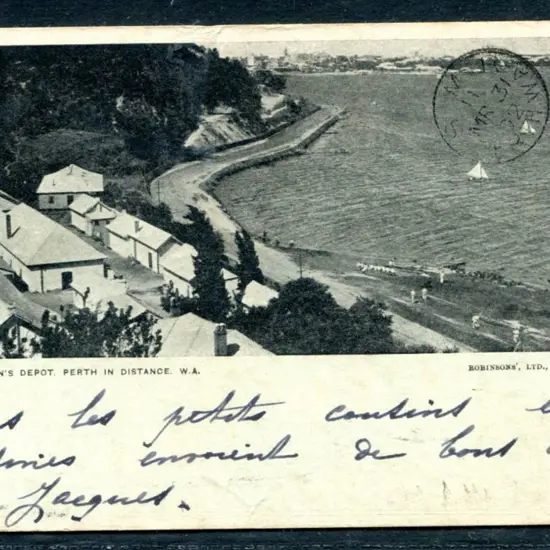 N'S DEPOT. PERTH IN DISTANCE. W.A.
ROBINSONS', LTD.,
les petits cousins
envoient de bons
Jacques.